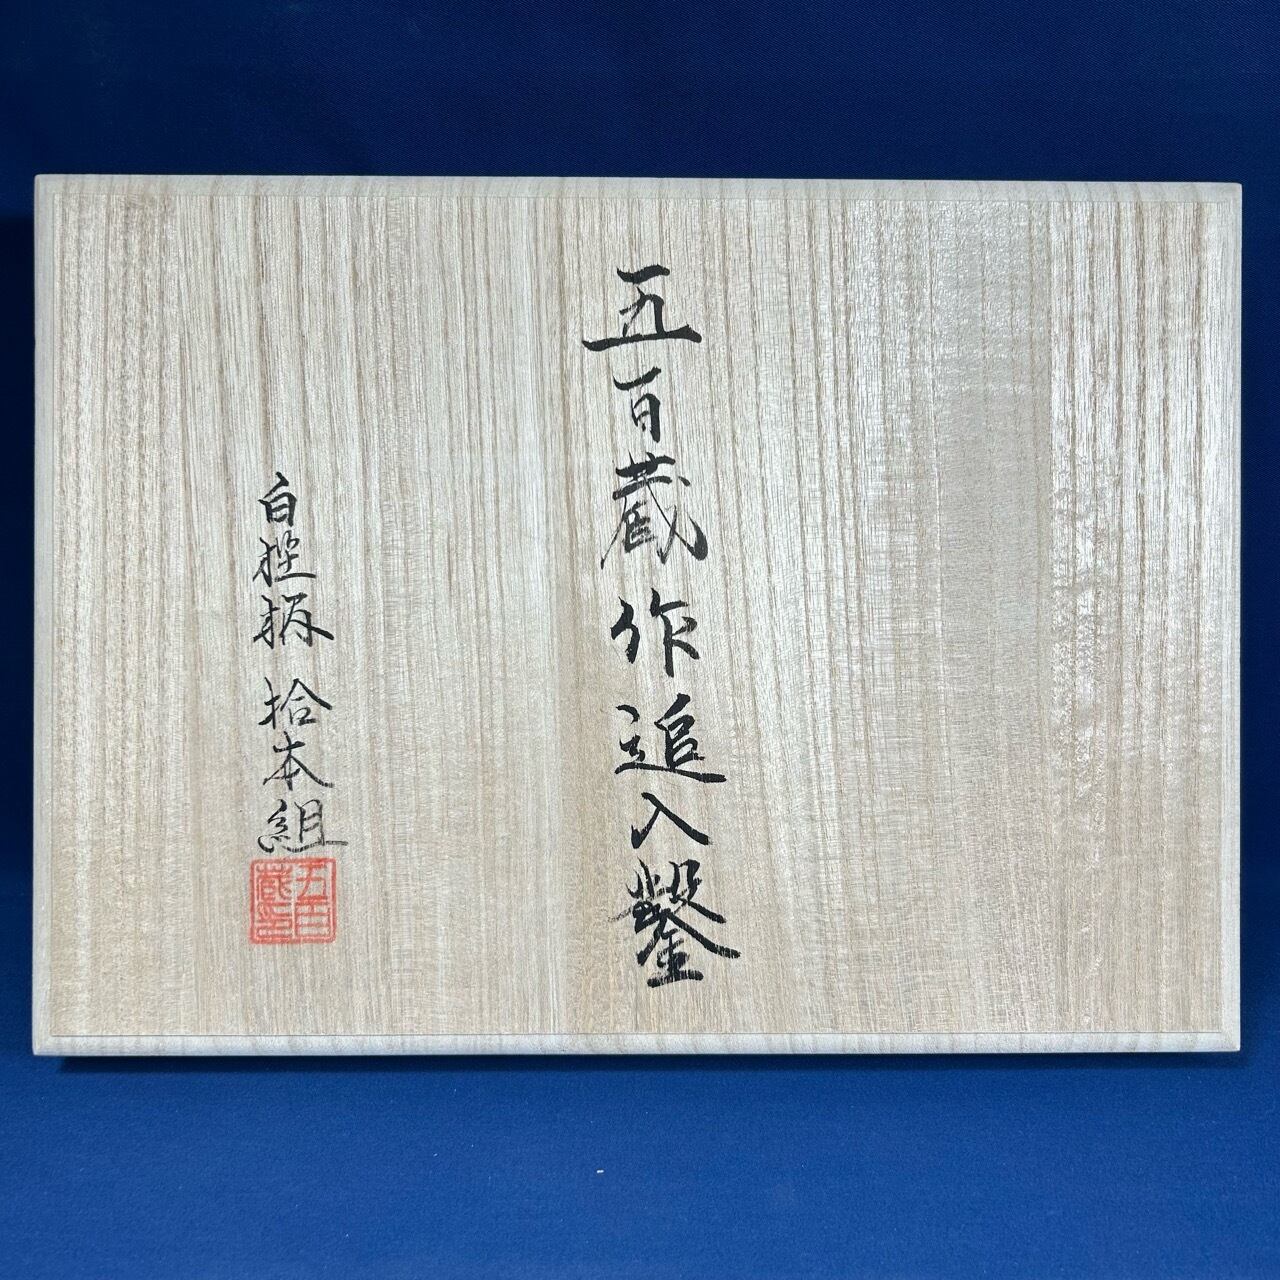 五百蔵作追入鑿
白樫柄 拾本組
五百蔵印